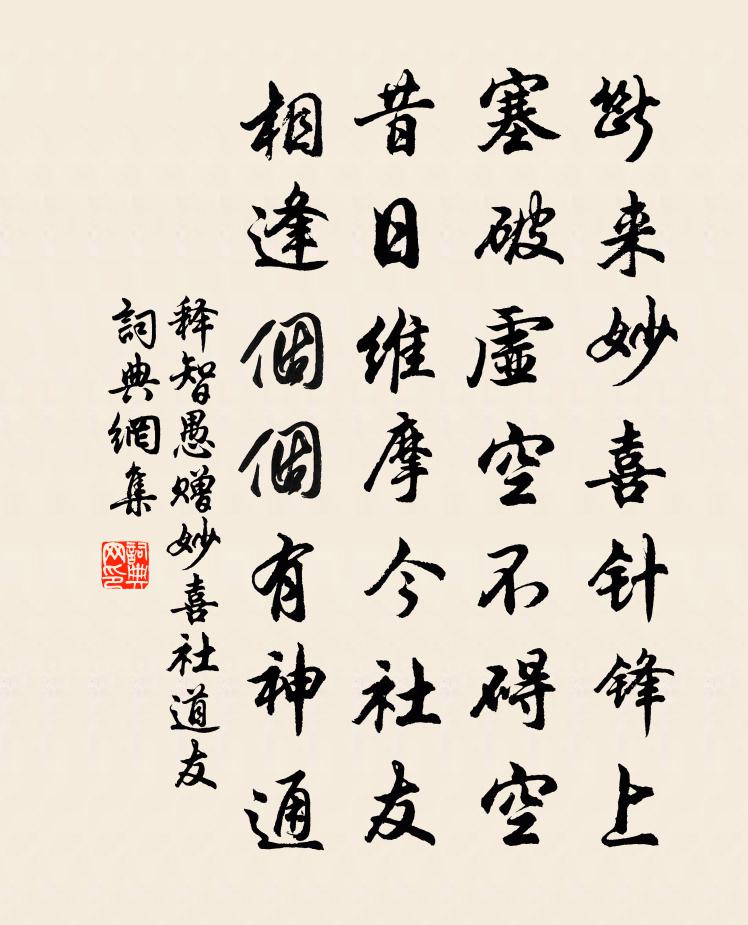 断来妙喜针锋上
塞破虛空不碍空
昔日维摩今社友
相逢個個有神通
释智愚赠妙喜社道友
詞典網集
詞典网印